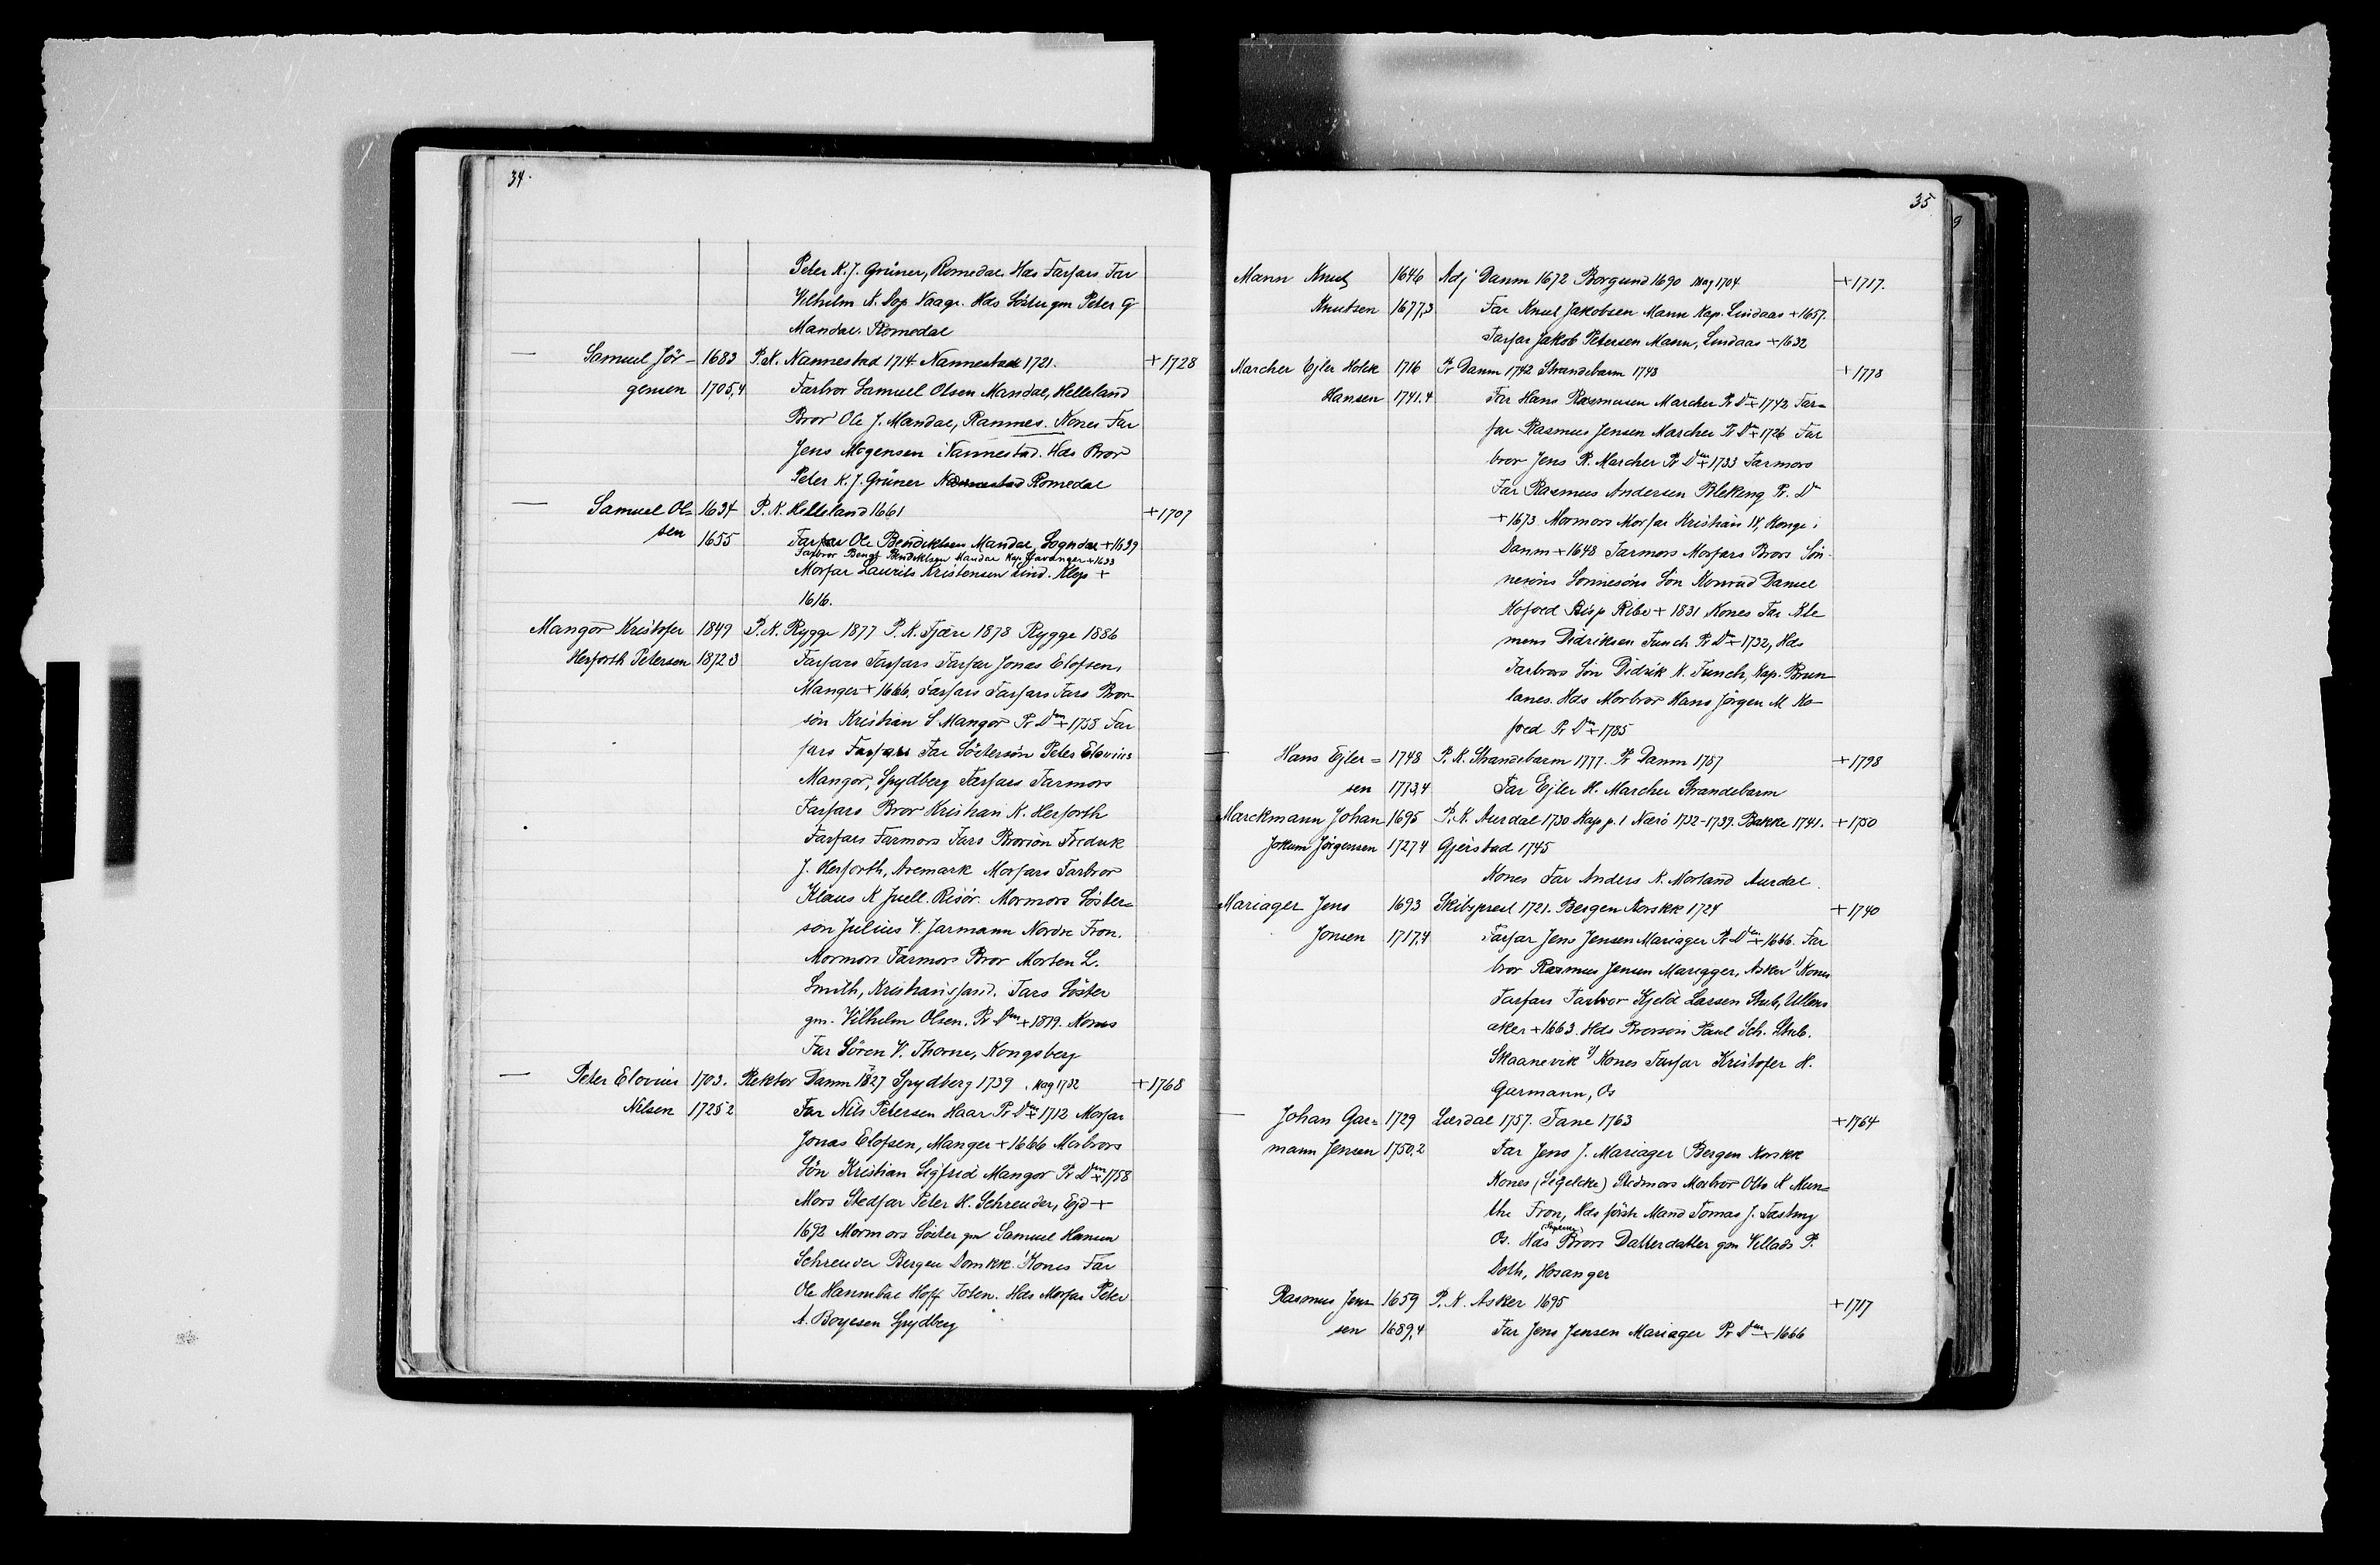 34.
Peter K. J. Grüner, Romedal. Hds Farfars Far
Vilhelm K. Sop Vaage. Hds Söster gm Peter G
Mandal. Romedal
— Samuel Jör- 1683 P.K. Nannestad 1714 Nannestad 1721. +1728
gensen 1705,4 Farbror Samuel Olsen Mandal, Helleland
Bror Ole J. Mandal, Rannes. Kones Far
Jens Mogensen Nannestad. Hds Bror
Peter K. J. Grüner Nannestad Romedal
— Samuel Ol= 1634 P.K. Helleland 1661 +1707
sen 1655 Farfar Ole Bendiktsen Mandal, Sogndal +1639
Farbror Bengt Bendiktsen Mandal Kap. Stavanger +1633
Morfar Laurits Kristensen Lind. Klep +
1616.
Mangor Kristofer 1849 P.K. Rygge 1877 P.K. Fjære 1878 Rygge 1886
Herforth Petersen 1872.3 Farfars Farfars Farfar Jonas Elofsen,
Manger +1666, Farfars Farfars Fars Bror
sön Kristian S Mangor Pr Dm +1758 Far
fars Farfars Far Söstersön Peter Elovius
Mangor, Spydberg Farfars Farmors
Farfars Bror Kristian K. Herforth
Farfars Farmors Fars Brorsön Fredrik
J. Herforth, Aremark Morfars Farbror
Klaus K Juell. Risör. Mormors Söster=
sön Julius V. Jarmann Nordre Fron.
Mormors Farmors Bror Morten L.
Smith, Kristiansand. Fars Söster
gm. Vilhelm Olsen. Pr Dm +1879. Kones
Far Sören V. Thorne, Kongsberg
— Peter Elovius 1703. Rektor Danm 1727 Spydberg 1739 . Mag 1732 +1768
Nilsen 1725 2 Far Nils Petersen Haar Pr Dm +1712 Morfar
Jonas Elofsen, Manger +1666 Morbrors
Sön Kristian Sigfrid Mangor Pr Dm +1758
Mors Stedfar Peter H. Schreuder, Ejd +
1692 Mormors Söster gm Samuel Hansen
Schreuder Bergen Domkk. Kones Far
Ole Hannibal Hoff Toten. Hds Morfar Peter
A. Boyesen Spydberg
35
Mann Knut 1646 Adj Danm 1672 Borgund 1690 Mag 1704 +1717.
Knutsen 1677,3 Far Knut Jakobsen Mann Kap. Lindaas +1657.
Farfar Jakob Petersen Mann, Lindaas +1632
Marcher Ejler Holck 1716 Pr Danm 1742 Strandebarm 1748 +1778
Hansen 1741.4 Far Hans Rasmusen Marcher Pr Dm +1742 Far=
far Rasmus Jensen Marcher Pr Dm +1726 Far
bror Jens R. Marcher Pr Dm +1733 Farmors
Far Rasmus Andersen Bleking Pr. D
+1673. Mormors Morfar Kristian IV, Konge i
Danm +1648 Farmors Morfars Brors Sön
nesöns Sönnesöns Sön Konrad Daniel
Kofoed Bisp Ribe +1831 Kones Far Kle
mens Didriksen Funch Pr Dm +1732, Hds
Farbrors Sön Didrik K. Funch, Kap. Brun
lanes. Hds Morbror Hans Jörgen M Ko-
foed Pr Dm +1785
— Hans Ejler= 1748 P.K. Strandebarm 1777. Pr Danm 1787 +1798
sen 1773,4 Far Ejler H. Marcher Strandebarm
Marckmann Johan 1695 P.K. Aurdal 1730 Kap p. l Nærö 1732-1739. Bakke 1741. +1750
Jokum Jörgensen 1727 4 Gjerstad 1745
Kones Far Anders N. Morland Aurdal.
Mariager Jens 1693 Skibsprest 1721. Bergen Korskk 1724 +1740
Jonsen 1717,4 Farfar Jens Jensen Mariager Pr Dm +1666. Far
bror Rasmus Jensen Mariager, Asker 1) Kones
Farfars Farbror Kjeld Larsen Stub, Ullens
aker +1663. Hds Brorsön Paul Sch. Stub.
Skaanevik 2) Kones Farfar Kristofer H.
Garmann, Os
— Johan Gar= 1729 Lærdal 1757. Fane 1763 +1764
mann Jensen 1750,2 Far Jens J. Mariager Bergen Korskk
Kones (Sigelcke) Stedmors Morbror Otto K Mun=
the Fron, Hds förste Mand Tomas J. Fasting
Os. Hds Brors Datterdatter gm Villads P.
Doth, Hosanger
Rasmus Jen= 1659 P.K. Asker 1695 +1717
sen 1689,4 Far Jens Jensen Mariager Pr Dm +1666